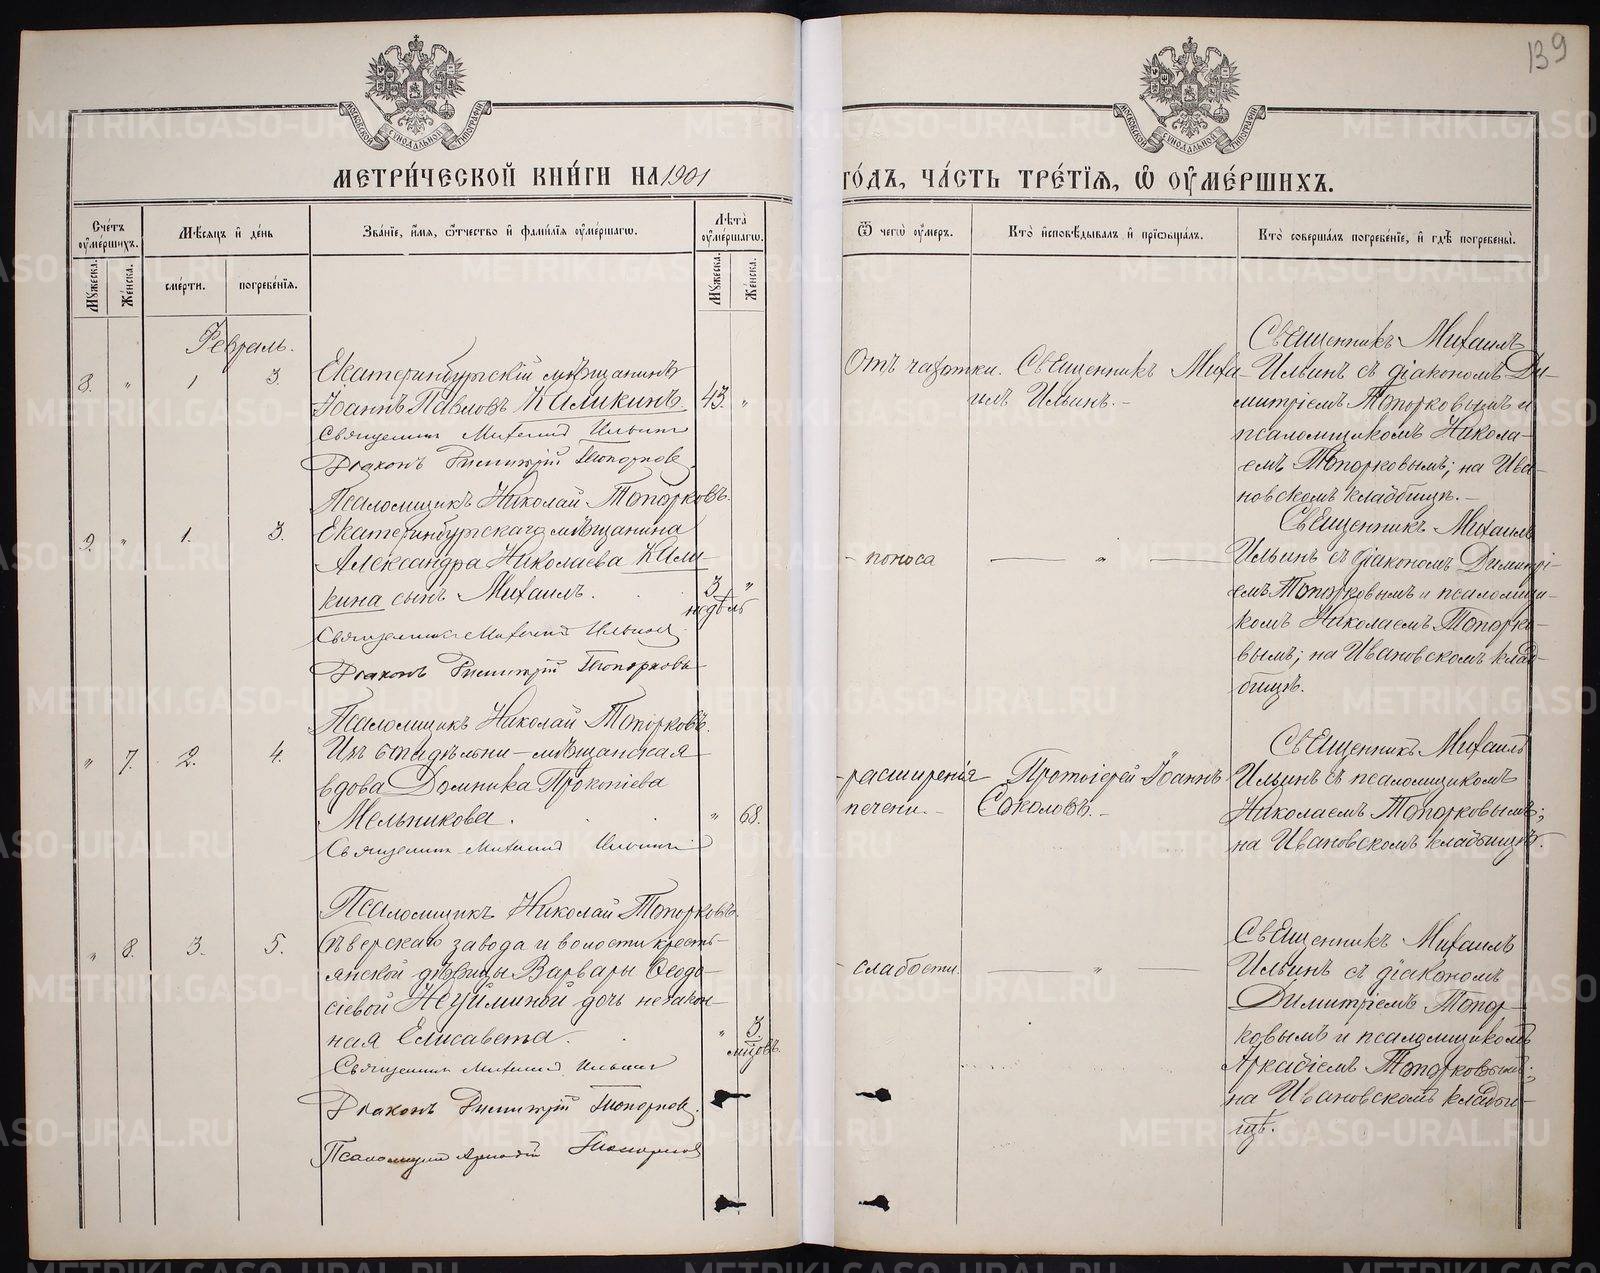 139
МОСКОВСКОЙ СѴНОДАЛЬНОЙ ТИПОГРАФІИ
МОСКОВСКОЙ СѴНОДАЛЬНОЙ ТИПОГРАФІИ
МЕТРИ́ЧЕСКОЙ КНИ́ГИ НА 1901
ГО́ДЪ, ЧА́СТЬ ТРЕ́ТІѦ, Ѽ ОУ҆МЕ́РШИХЪ.
Сче́тъ оу҆ме́ршихъ.
Мѣ́сѧцъ и҆ де́нь
Зва́нїе, и҆́мѧ, ѻ҆́тчество и҆ фами́лїѧ оу҆ме́ршагѡ.
Лѣ́та оу҆ме́ршагѡ.
Ѿ чегѡ̀ оу҆́меръ.
Кто̀ и҆сповѣ́дывалъ и҆ прїѡбща́лъ.
Кто̀ соверша́лъ погребе́нїе, и҆ гдѣ̀ погребены̀.
Мꙋ́жеска.
Же́нска.
сме́рти.
погребе́нїѧ.
Мꙋ́жеска.
Же́нска.
Февраль.
8. " 1 3.
Екатеринбургскій мѣщанинъ
Іоаннъ Павловъ Каликинъ
43. "
Священникъ Михаилъ Ильинъ
Діаконъ Димитрій Топорковъ
Псаломщикъ Николай Топорковъ.
Отъ чахотки.
Священникъ Миха
илъ Ильинъ.-
Священникъ Михаилъ
Ильинъ съ діакономъ Ди-
митріемъ Топорковымъ и
псаломщикомъ Никола-
емъ Топорковымъ; на Ива-
новскомъ кладбищѣ.-
9. " 1. 3.
Екатеринбургскаго мѣщанина
Александра Николаева Кали-
кина сынъ Михаилъ.
3 "
недѣль
Священникъ Михаилъ Ильинъ
Діаконъ Димитрій Топорковъ
Псаломщикъ Николай Топорковъ.
- поноса
"
Священникъ Михаилъ
Ильинъ съ діакономъ Димитрі-
емъ Топорковымъ и псаломщи-
комъ Николаемъ Топорко-
вымъ; на Ивановскомъ клад-
бищѣ.
" 7. 2. 4.
Изъ богадѣльни - мѣщанская
вдова Домника Прокопіева
Мельникова.
" 68.
Священникъ Михаилъ Ильинъ
Псаломщикъ Николай Топорковъ.
- расширенія
печени. -
Протоіерей Іоаннъ
Соколовъ.-
Священникъ Михаилъ
Ильинъ съ псаломщикомъ
Николаемъ Топорковымъ;
на Ивановскомъ кладбищѣ.
" 8. 3. 5.
завода и волости кресть-
янской дѣвицы Варвары Ѳеодо-
сіевой дочь незакон-
ная Елисавета.
" 3.
мѣсяцовъ.
Священникъ Михаилъ Ильинъ
Діаконъ Димитрій Топорковъ.
Псаломщикъ Аркадій Топорковъ
- слабости.
"
Священникъ Михаилъ
Ильинъ съ діакономъ
Димитріемъ Топор-
ковымъ и псаломщикомъ
Аркадіемъ Топорковымъ;
на Ивановскомъ кладби-
щѣ.
METRIKI.GASO-URAL.RU